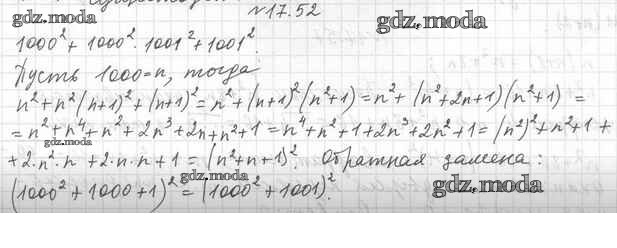 №17.52
gdz.moda gdz.moda
1000² + 1000² · 1001² + 1001².
Пусть 1000 = n, тогда
n² + n² (n+1)² + (n+1)² = n² + (n+1)² (n²+1) = n² + (n² + 2n + 1) (n² + 1) =
= n² + n⁴ + n² + 2n³ + 2n + n² + 1 = n⁴ + n² + 1 + 2n³ + 2n² + 1 = (n²)² + n² + 1 +
gdz.moda
+ 2·n²·n + 2·n·n + 1 = (n² + n + 1)². Обратная замена:
gdz.moda
(1000² + 1000 + 1)² = (1000² + 1001)².
gdz.moda